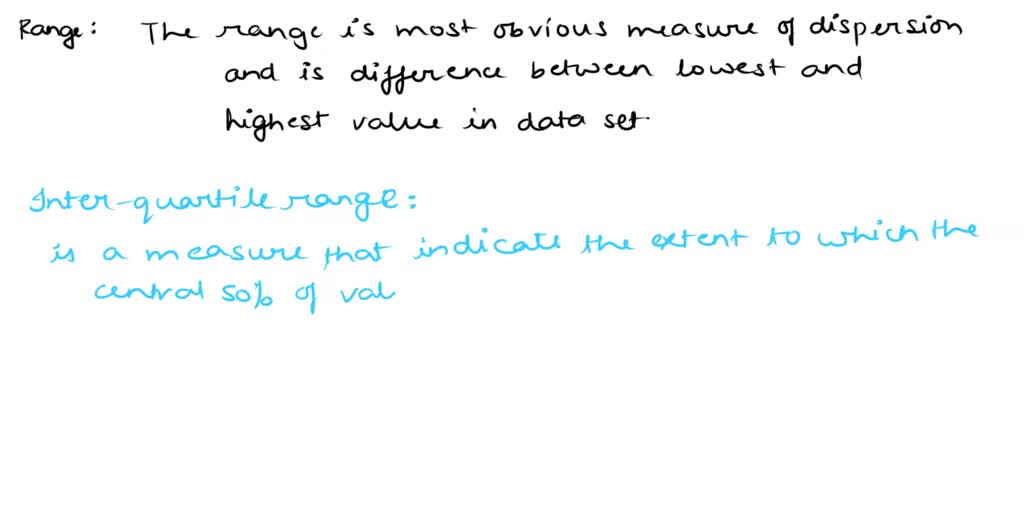 Range: The range is most obvious measure of dispersion
and is difference between lowest and
highest value in data set
Inter-quartile range:
is a measure that indicate the extent to which the
central 50% of val